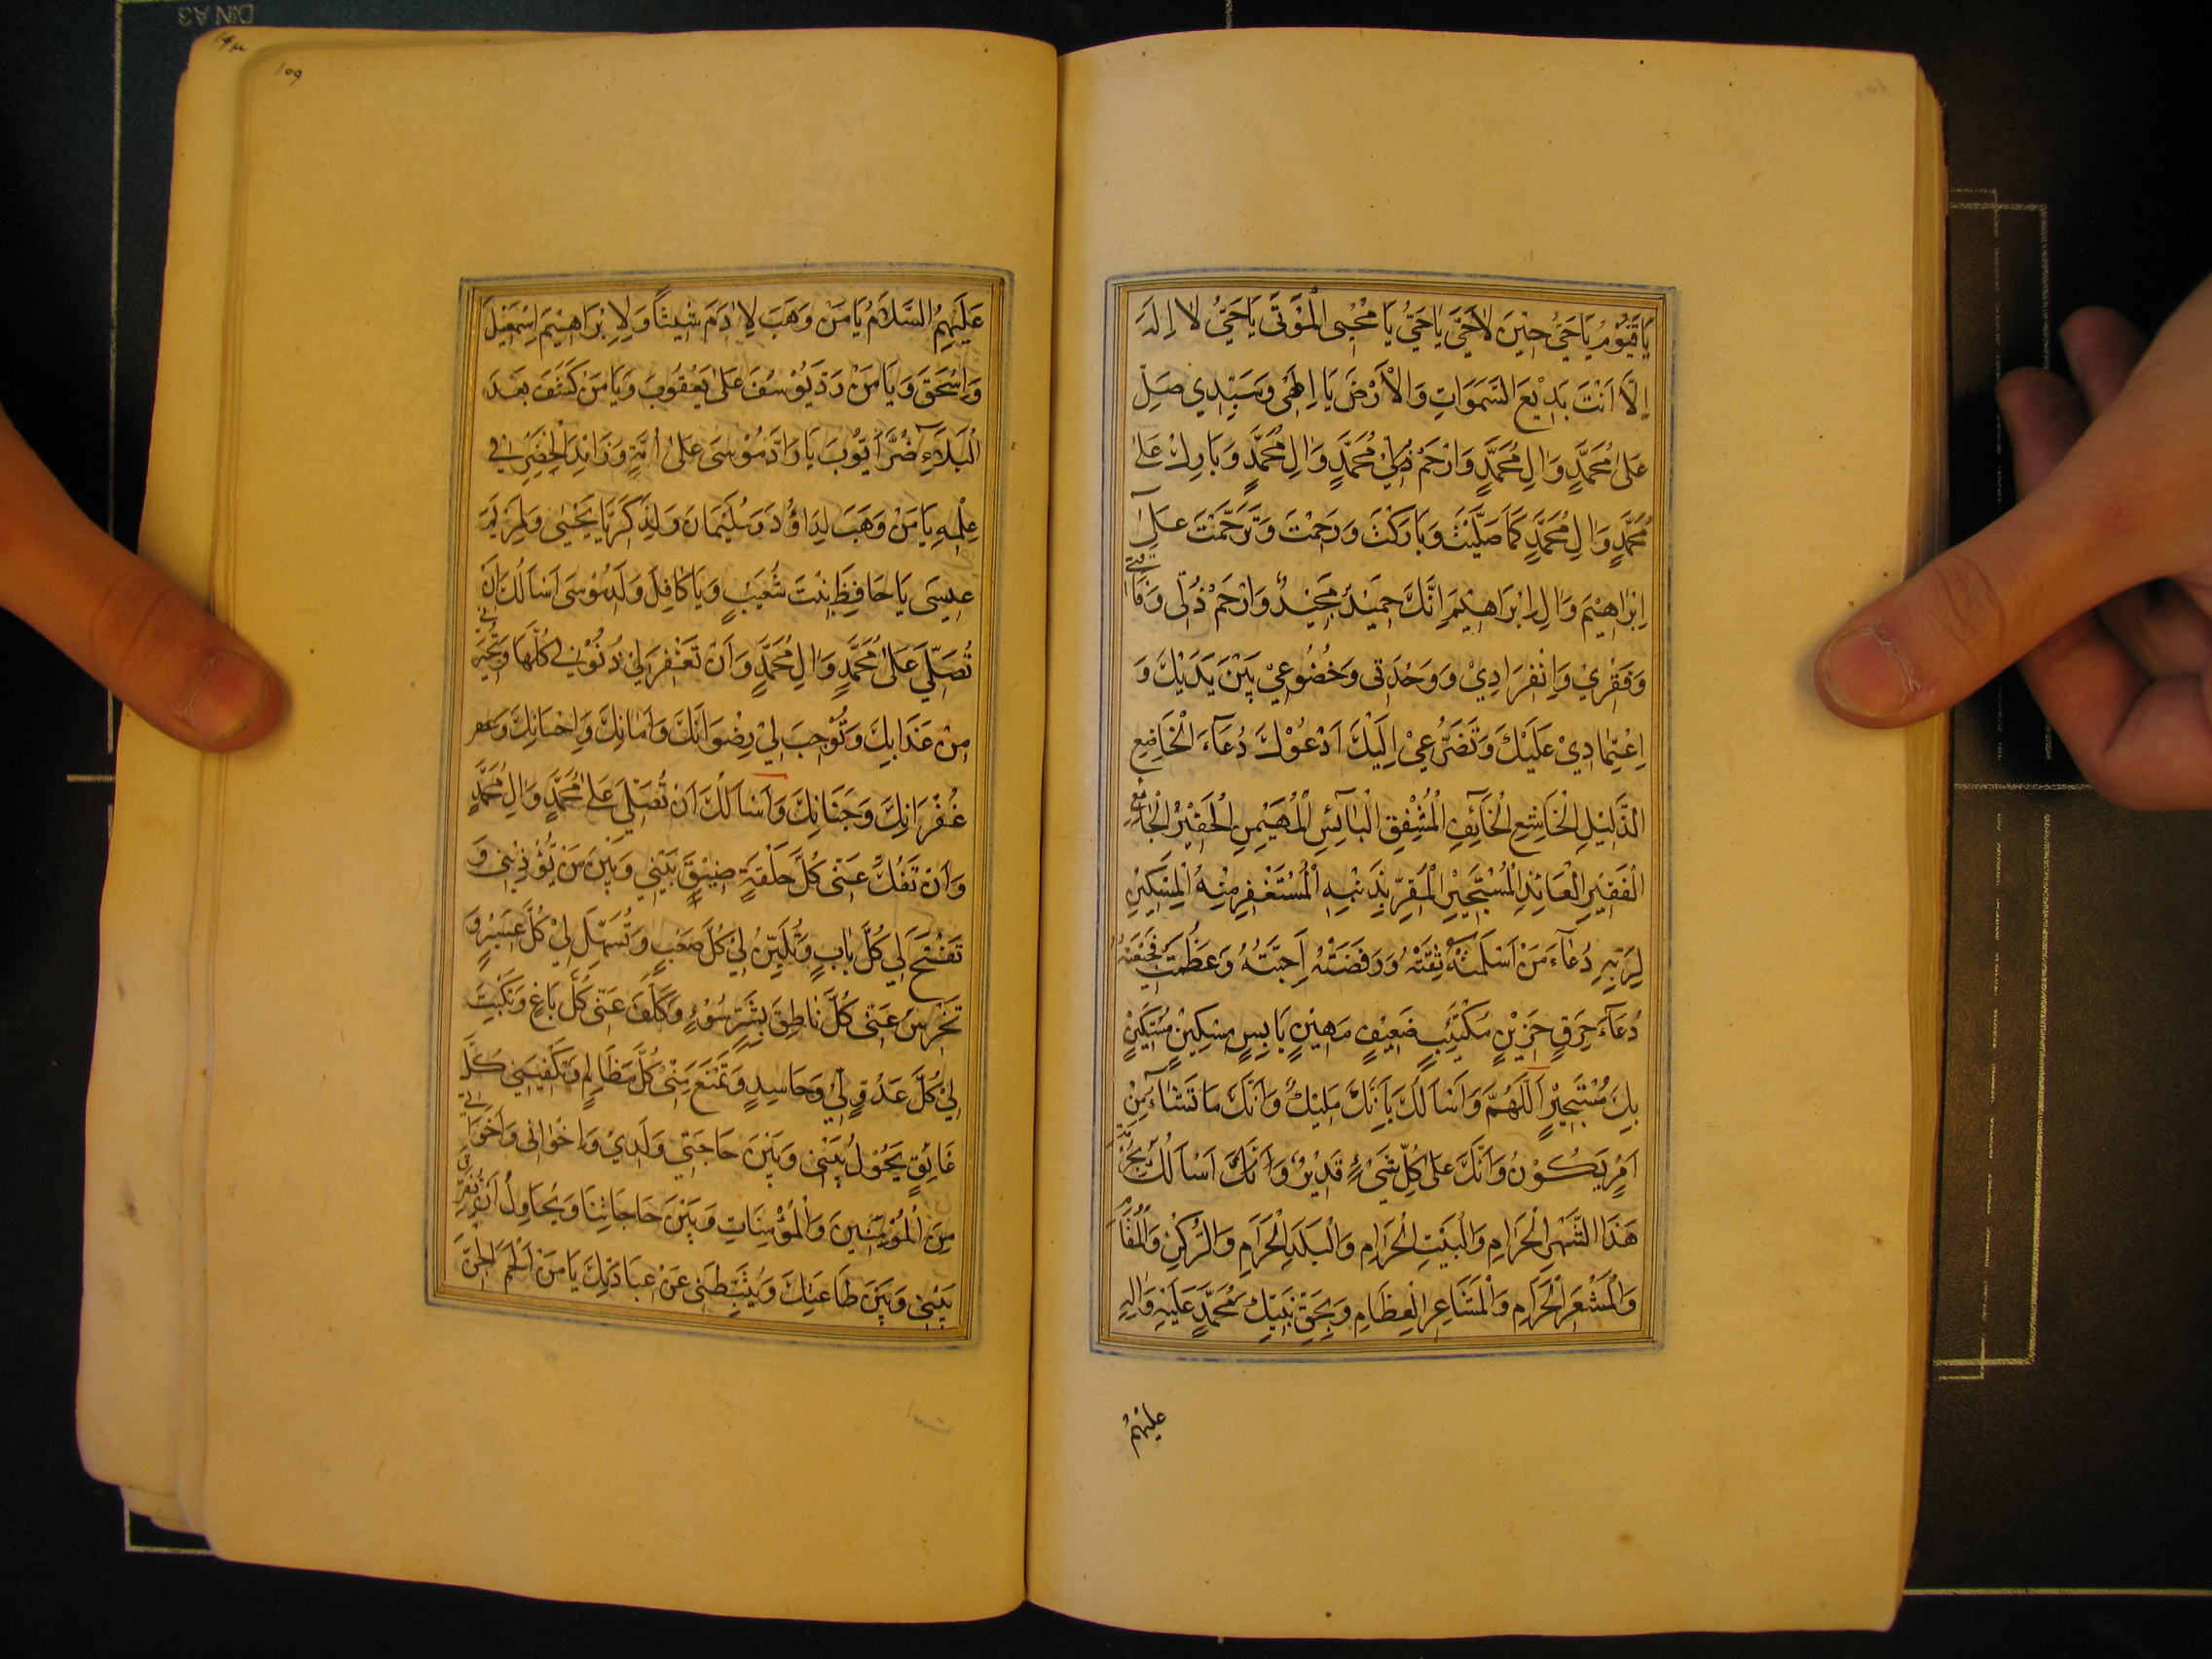 يَا قَيُّوْمُ يَا حَيُّ حِيْنَ لَا حَيَّ يَا حَيُّ يَا مُحْيِىَ الْمَوْتَى يَا حَيُّ لَا اِلَهَ
اِلَّا اَنْتَ بَدِيْعَ السَّمَوَاتِ وَالْاَرْضَ يَا اِلٰهِىْ وَسَيِّدِي صَلِّ
عَلَى مُحَمَّدٍ وَاٰلِ مُحَمَّدٍ وَارْحَمْ مُحَمَّدٍ وَاٰلِ مُحَمَّدٍ وَبَارِكْ عَلَى
مُحَمَّدٍ وَاٰلِ مُحَمَّدٍ كَمَا صَلَّيْتَ وَبَارَكْتَ وَرَحِمْتَ وَتَرَحَّمْتَ عَلَى
اِبْرَاهِيْمَ وَاٰلِ اِبْرَاهِيْمَ اِنَّكَ حَمِيْدٌ مَجِيْدٌ وَارْحَمْ ذُلِّى وَفَاقَتِى
وَفَقْرِيْ وَاِنْفِرَادِيْ وَوَحْدَتِى وَخُضُوْعِيْ بَيْنَ يَدَيْكَ وَ
اِعْتِمَادِيْ عَلَيْكَ وَتَضَرُّعِيْ اِلَيْكَ اَدْعُوْكَ دُعَاءَ الْخَاضِعِ
الذَّلِيْلِ الْخَاشِعِ الْخَائِفِ الْمُشْفِقِ الْبَائِسِ الْمُهَيْمِنِ الْحَقِيْرِ الْجَائِعِ
الْفَقِيْرِ الْعَائِذِ الْمُسْتَجِيْرِ الْمُقِرِّ بِذَنْبِهِ الْمُسْتَغْفِرِ مِنْهُ الْمِسْكِيْنِ
لِرَبِّهِ دُعَاءَ مَنْ اَسْلَمَتْهُ ثِقَتُهُ وَرَفَضَتْهُ اَحِبَّتُهُ وَعَظُمَتْ فَجِيْعَتُهُ
دُعَاءَ حَرِقٍ حَزِيْنٍ مُكْتَئِبٍ ضَعِيْفٍ مَهِيْنٍ بَائِسٍ مِسْكِيْنٍ مُسْتَكِيْنٍ
بِكَ مُسْتَجِيْرٍ اَللّٰهُمَّ وَاَسْاَلُكَ بِاَنَّكَ مَلِيْكٌ وَاَنَّكَ مَا تَشَاءُ مِنْ
اَمْرٍ يَكُوْنُ وَاَنَّكَ عَلَى كُلِّ شَىْءٍ قَدِيْرٌ وَاَنَّكَ اَسْاَلُكَ بِحُرْمَةِ
هَذَا الشَّهْرِ الْحَرَامِ وَالْبَيْتِ الْحَرَامِ وَالْبَلَدِ الْحَرَامِ وَالرُّكْنِ وَالْمَقَامِ
وَالْمَشْعَرِ الْحَرَامِ وَالْمَشَاعِرِ الْعِظَامِ وَبِحَقِّ نَبِيِّكَ مُحَمَّدٍ عَلَيْهِ وَاٰلِهِ
عليهم
١٥٩
عَلَيْهِمُ السَّلَامُ يَا مَنْ وَهَبَ لِاٰدَمَ شِيْثًا وَلِاِبْرَاهِيْمَ اِسْمٰعِيْلَ
وَاِسْحَقَ وَيَا مَنْ رَدَّ يُوْسُفَ عَلَى يَعْقُوبَ وَيَا مَنْ كَشَفَ بَعْدَ
الْبَلَاءِ ضُرَّ اَيُّوْبَ يَا رَادَّ مُوْسَى عَلَى اُمِّهِ وَزَائِدَ الْخِضْرِ فِى
عِلْمِهِ يَا مَنْ وَهَبَ لِدَاوُدَ سُلَيْمَانَ وَلِذَكَرِيَّا يَحْيٰى وَلِمَرْيَمَ
عِيْسَى يَا حَافِظَ بِنْتَ شُعَيْبٍ وَيَا كَافِلَ وَلَدِ مُوْسَى اَسْاَلُكَ اَنْ
تُصَلِّيَ عَلَى مُحَمَّدٍ وَاٰلِ مُحَمَّدٍ وَاَنْ تَغْفِرَ لِيْ ذُنُوْبِي كُلَّهَا وَتُجِيْرَنِى
مِنْ عَذَابِكَ وَتُوْجِبَ لِيْ رِضْوَانَكَ وَاَمَانِكَ وَاِحْسَانِكَ وَ
غُفْرَانِكَ وَجَنَانِكَ وَاَسْاَلُكَ اَنْ تُصَلِّيَ عَلَى مُحَمَّدٍ وَاٰلِ مُحَمَّدٍ
وَاَنْ تَفُكَّ عَنِّى كُلَّ حَلْقَةٍ ضِيْقٍ بَيْنِي وَبَيْنَ مَنْ يُؤْذِيْنِى وَ
تَفْتَحَ لِي كُلَّ بَابٍ وَتُلَيِّنَ لِيْ كُلَّ صَعْبٍ وَتُسَهِّلَ لِيْ كُلَّ عَسِيْرٍ وَ
تَخْرِسَ عَنِّى كُلَّ نَاطِقٍ بِشَرِّ سُوْءٍ وَتَكُفَّ عَنِّى كُلَّ بَاغٍ وَتَكْبِتَ
لِيْ كُلَّ عَدُوٍّ لِيْ وَحَاسِدٍ وَتَمْنَعَ مِنِّىْ كُلَّ ظَالِمٍ وَتَكْفِيَنِي كُلَّ
عَائِقٍ يَحُوْلُ بَيْنِى وَبَيْنَ حَاجَتِي وَلَدِيْ وَاِخْوَانِى وَاَخَوَاتِى
مِنَ الْمُؤْمِنِيْنَ وَالْمُؤْمِنَاتِ وَبَيْنَ حَاجَاتِنَا وَيُحَاوِلُ اَنْ يُفَرِّقَ
بَيْنِى وَبَيْنَ طَاعَتِكَ وَيُثَبِّطَنِى عَنْ عِبَادَتِكَ يَا مَنْ اَلْجَمَ الْجِنَّ